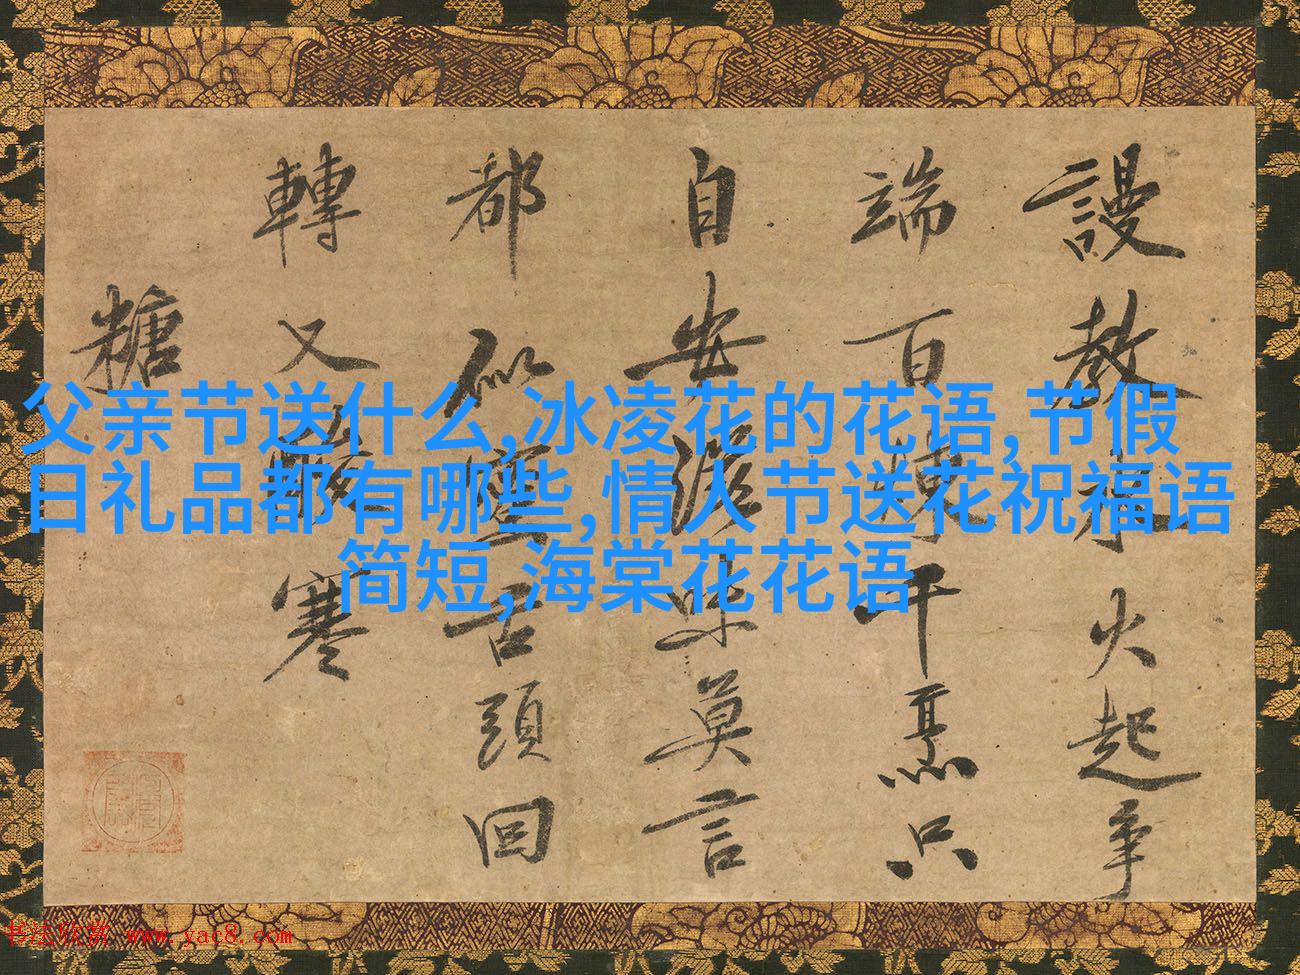 謾教水火起爭
端百煉千熏只
自安澹味莫言
都似舌頭回
轉又酸寒
糖
父亲节送什么,冰凌花的花语,节假
日礼品都有哪些,情人节送花祝福语
简短,海棠花花语
书法欣赏 www.yac8.com